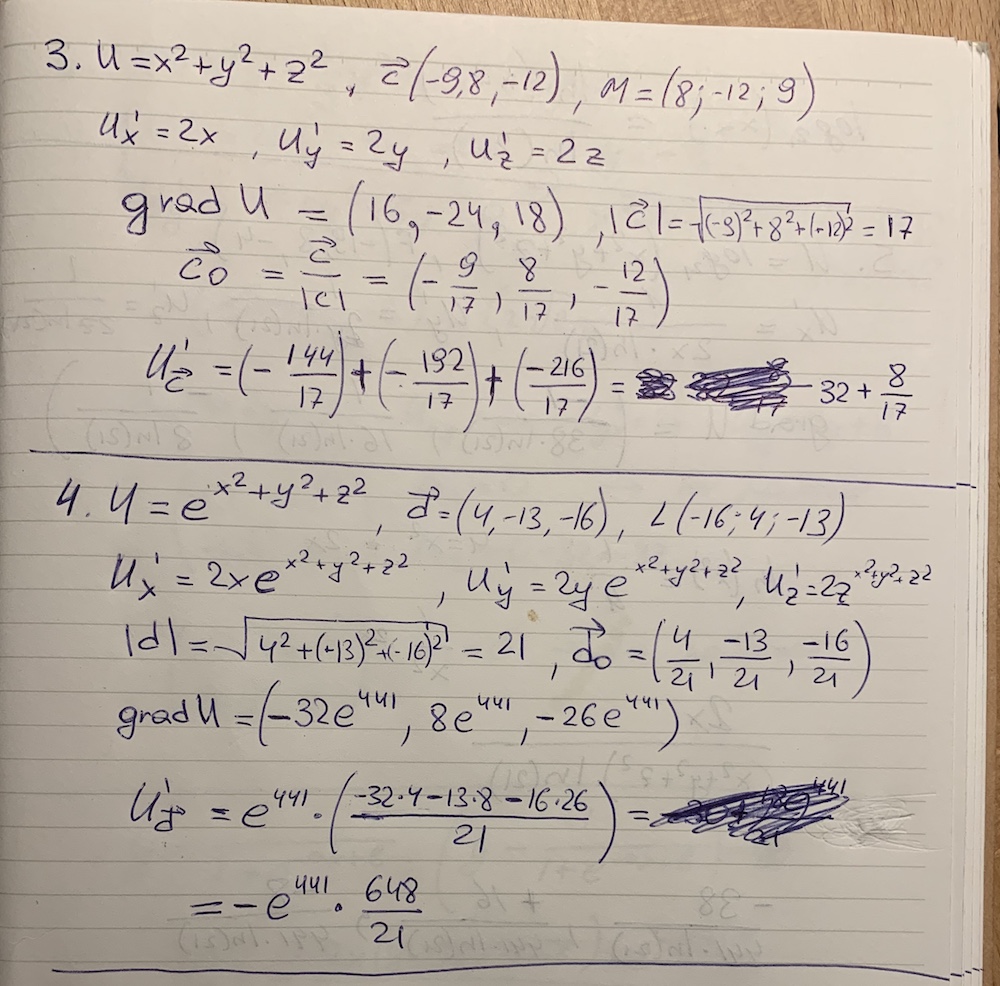 3. U = x² + y² + z² , c⃗ (-9,8,-12) , M = (8; -12; 9)
U'x = 2x , U'y = 2y , U'z = 2z
grad U = (16, -24, 18) , |c⃗| = √((-9)² + 8² + (-12)²) = 17
c⃗0 = c⃗/|c| = (- 9/17 , 8/17 , - 12/17)
U'c⃗ = (- 144/17) + (- 192/17) + (-216/17) = - 32 + 8/17
4. U = e^(x² + y² + z²) , d⃗ = (4, -13, -16) , L (-16; 4; -13)
U'x = 2xe^(x² + y² + z²) , U'y = 2ye^(x² + y² + z²) , U'z = 2z^(x² + y² + z²)
|d| = √(4² + (-13)² + (-16)²) = 21 , d⃗0 = (4/21 , -13/21 , -16/21)
grad U = (-32e^441 , 8e^441 , -26e^441)
U'd⃗ = e^441 · ((-32·4 - 13·8 - 16·26)/21) =
= - e^441 · 648/21